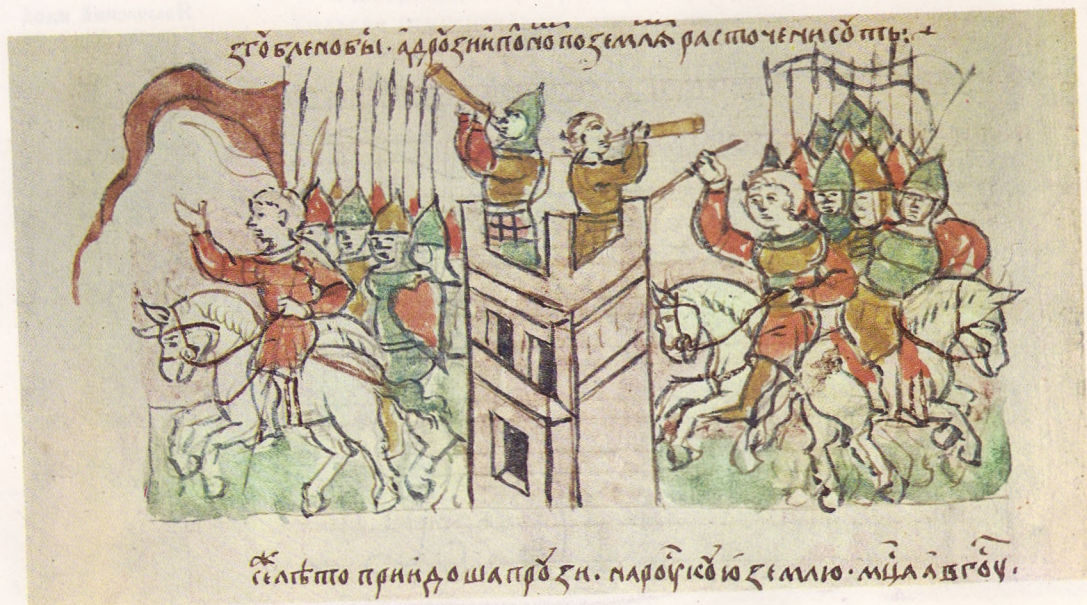 згꙋблено бы · а дрꙋзии поно по земля расточени сꙋть: +
се лѣто приидоша прꙋзи · на рꙋскꙋю землю · мц҃а авгоⷭꙋ ·